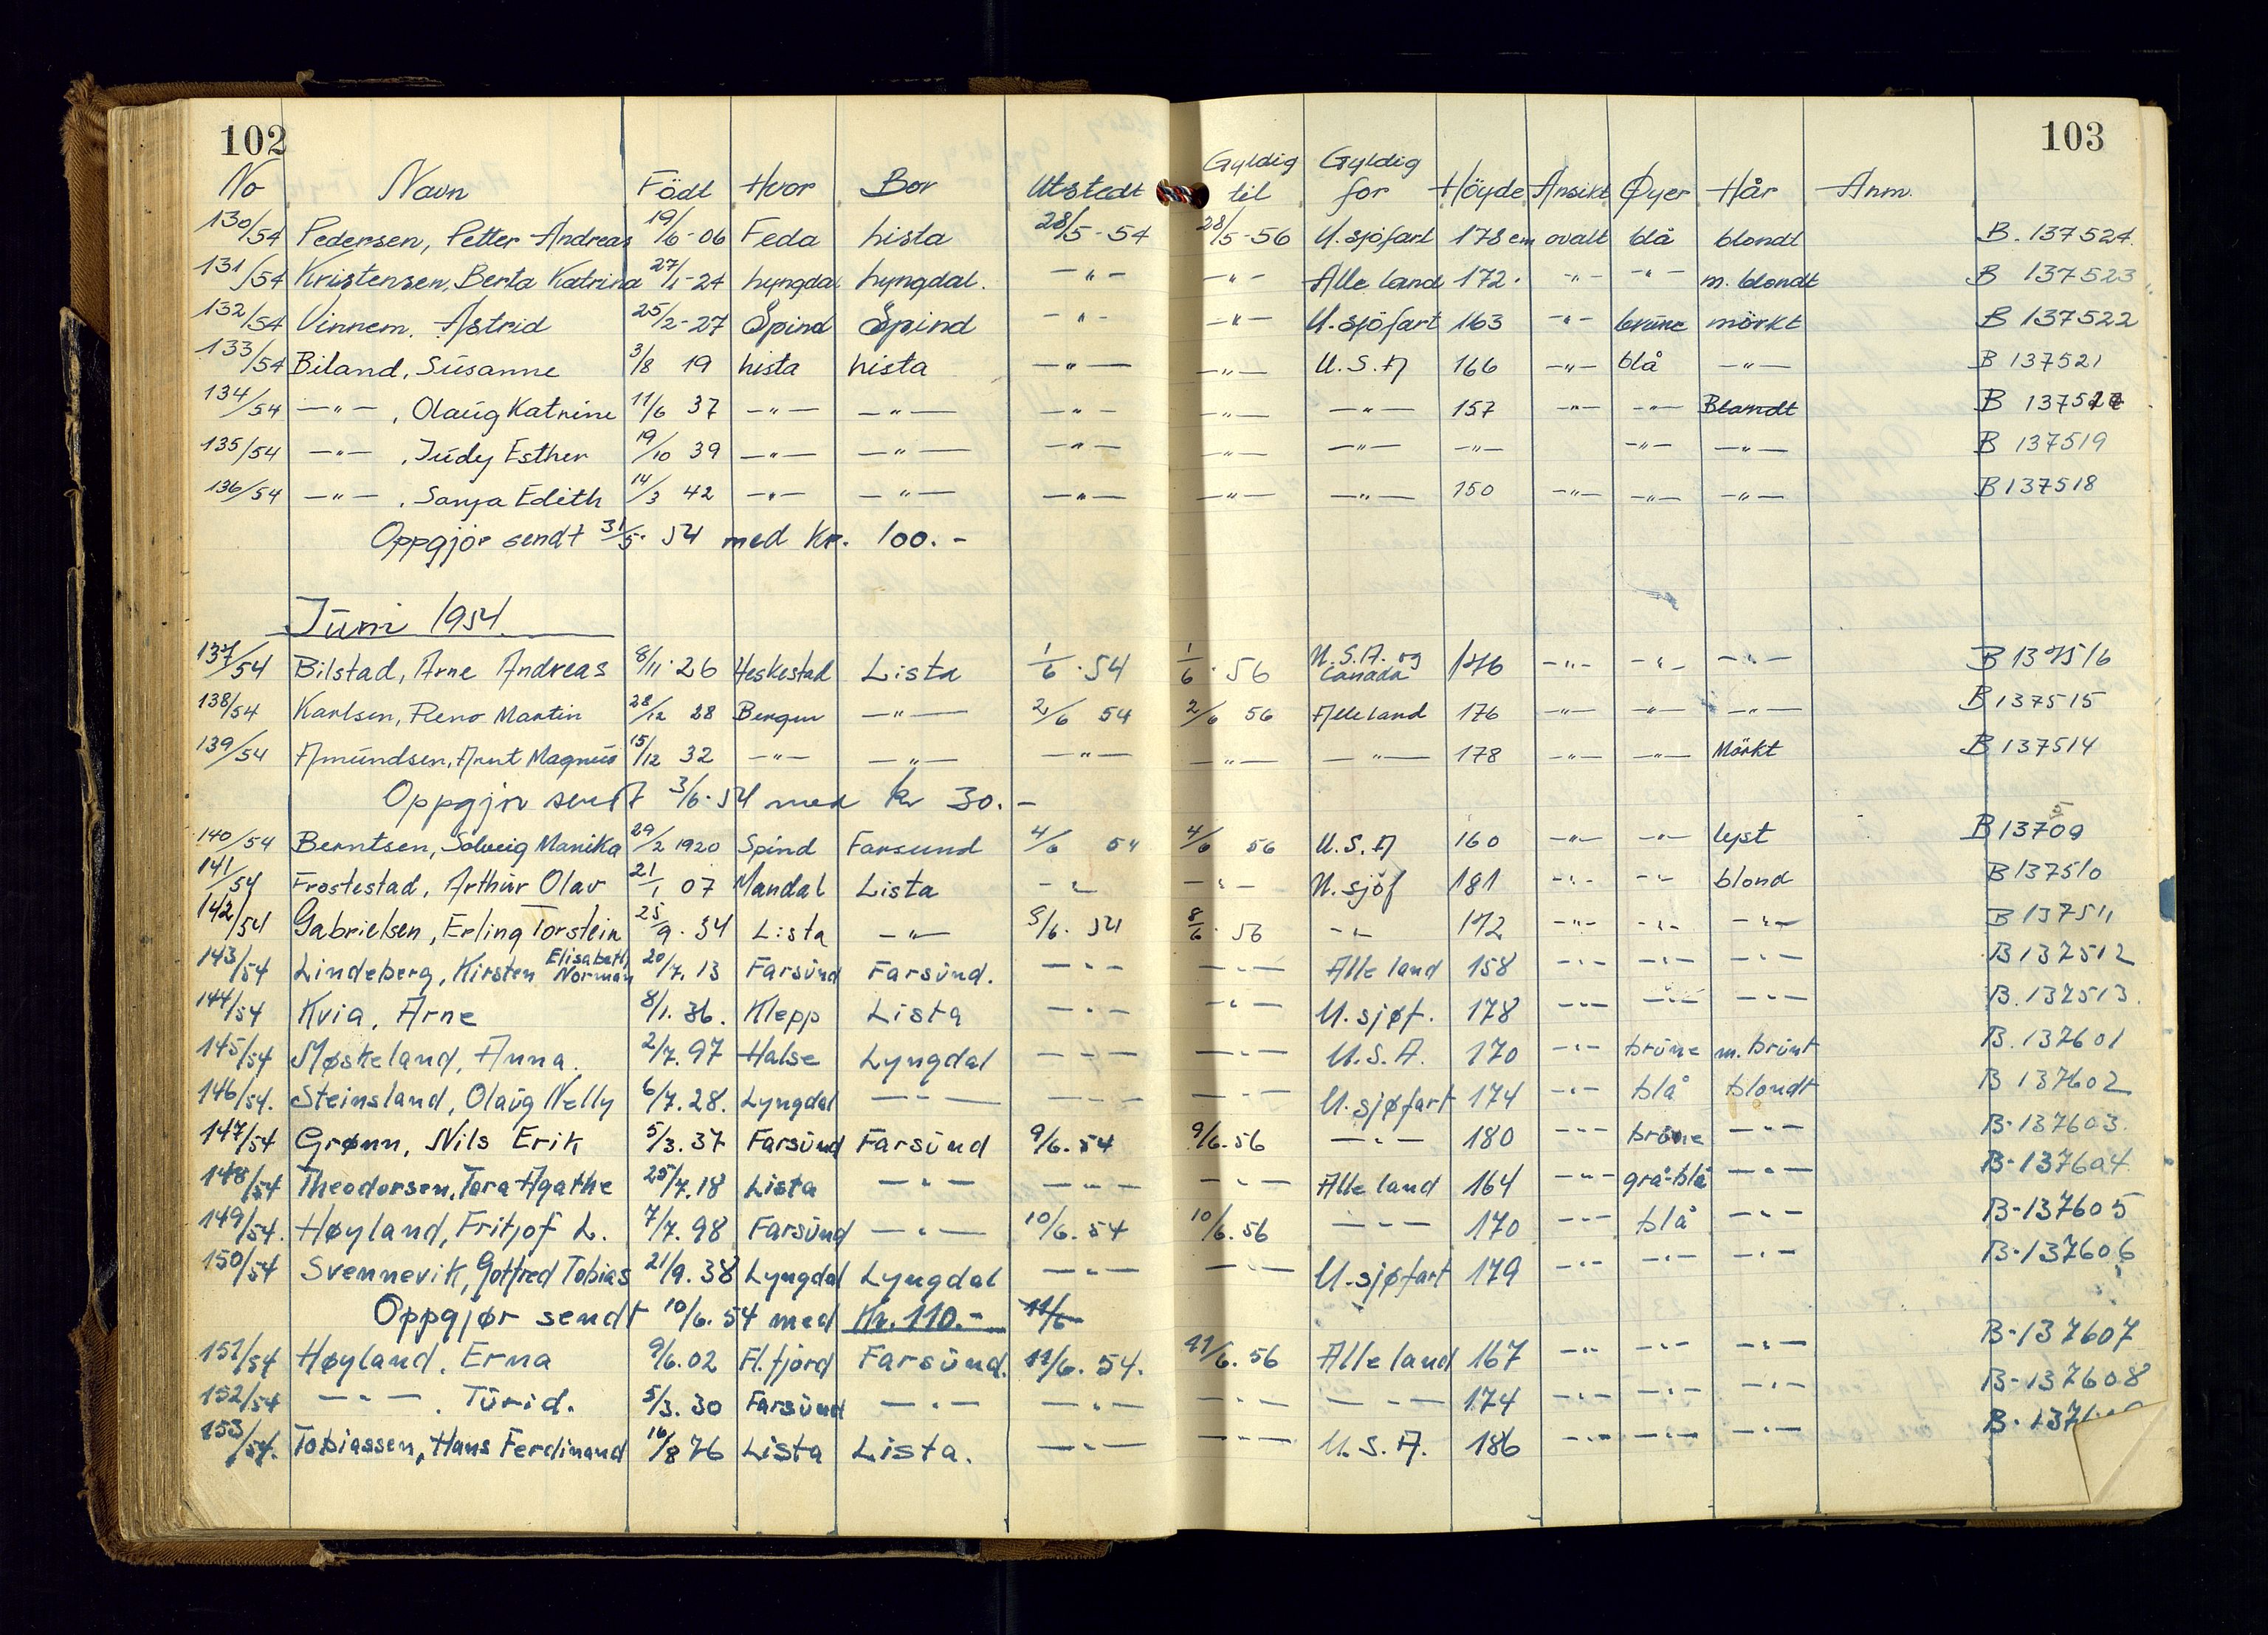 102 103
No Navn Födt Hvor Bor Utstedt Gyldig til Gyldig for Höyde Ansikt Øyer Hår Anm.
130/54 Pedersen, Petter Andreas 19/6-06 Feda Lista 28/5-54 28/5-56 U.sjöfart 178 cm ovalt blå blondt B. 137524.
131/54 Kristensen, Berta Katrina 27/1-24 Lyngdal Lyngdal. -"- -"- Alle land 172. -"- -"- m. blondt B 137523
132/54 Vinnem. Astrid 25/2-27 Spind Spind -"- -"- U.sjöfart 163 -"- brüne mörkt B 137522
133/54 Biland, Süsanne 3/8 19 Lista Lista -"- -"- U.S.A 166 -"- blå -"- B 137521
134/54 -"-, Olaüg Katrine 11/6 37 -"- -"- -"- -"- -"- 157 -"- -"- Blondt B 1375
135/54 -"-, Jüdy Esther 19/10 39 -"- -"- -"- -"- -"- -"- -"- -"- B 137519
136/54 -"-, Sanja Edith 14/3 42 -"- -"- -"- -"- -"- 150 -"- -"- -"- B137518
Oppgjör sendt 31/5. 54 med Kr. 100.-
Jüni 1954
137/54 Bilstad, Arne Andreas 8/11.26 Heskestad Lista 1/6.54 1/6.56 U.S.A. og Canada 176 -"- -"- -"- B 137516
138/54 Karlsen, Reno Martin 28/12 28 Bergen -"- 2/6 54 2/6 56 Alle land 176 -"- -"- -"- B 137515
139/54 Amündsen, Arnt Magnüs 15/12 32 -"- -"- -"- -"- -"- 178 -"- -"- Mörkt B 137514
Oppgjör sendt 3/6.54 med kr 30.-
140/54 Berntsen, Solveig Marika 29/2 1920 Spind Farsund 4/6 54 4/6 56 U.S.A 160 -"- -"- lyst B 137509
141/54 Frostestad, Arthür Olav 21/1 07 Mandal Lista -"- -"- U.sjöf 181 -"- -"- blond B137510
142/54 Gabrielsen, Erling Torstein 25/9.34 Lista -"- 8/6.54 8/6.56 -"- 172 -"- -"- -"- B 137511
143/54 Lindeberg, Kirsten Elisabeth Norman 20/7.13 Farsünd Farsünd. -"- -"- Alle land 158 -"- -"- -"- B 137512
144/54 Kvia, Arne 8/1.36. Klepp Lista -"- -"- U.sjøf. 178 -"- -"- -"- B.137513.
145/54 Møskeland, Anna. 2/7.97 Halse Lyngdal -"- -"- U.S.A. 170 -"- brüne m. brünt B.137601
146/54. Steinsland, Olaüg Nelly 6/7.28. Lyngdal -"- -"- -"- U.sjøfart 174 -"- blå blondt B 137602
147/54 Grønn, Nils Erik 5/3.37 Farsünd Farsünd 9/6.54 9/6.56 -"- 180 -"- brüne -"- B-137603.
148/54 Theodorsen, Tora Agathe 25/7.18 Lista -"- -"- -"- Alle land 164 -"- grå-blå -"- B-137604.
149/54. Høyland, Fritjof L. 7/7.98 Farsünd -"- 10/6.54 10/6.56 -"- 170 -"- blå -"- B-137605
150/54 Svennevik, Gotfred Tobias 21/9.38 Lyngdal Lyngdal -"- -"- U.sjøfart 179 -"- -"- -"- B-137606
Oppgjør sendt 10/6.54 med Kr. 110.- 11/6
151/54 Høyland, Erna 9/6.02 Fl.fjord Farsünd. 11/6.54. 11/6.56 Alle land 167 -"- -"- -"- B-137607
152/54 -"-. Türid. 5/3.30 Farsünd -"- -"- -"- -"- 174 -"- -"- -"- B-137608
153/54. Tobiassen, Hans Ferdinand 16/8 76 Lista Lista. -"- -"- U.S.A. 186 -"- -"- -"- B-137